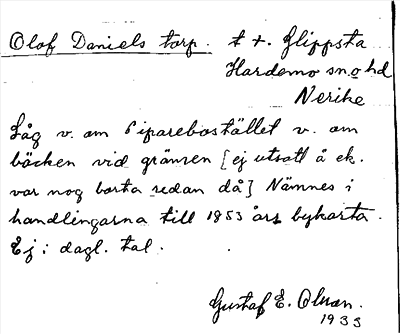 Olof Daniels torp. t. t. Glippsta
Hardemo sn. o. hd
Nerike
Låg v. om Piparebostället v. om
bäcken vid gränsen [ej utsatt å ek.
var nog borta redan då] Nämnes i
handlingarna till 1853 års bykarta.
Ej i dagl. tal.
Gustaf E. Olsson.
1933